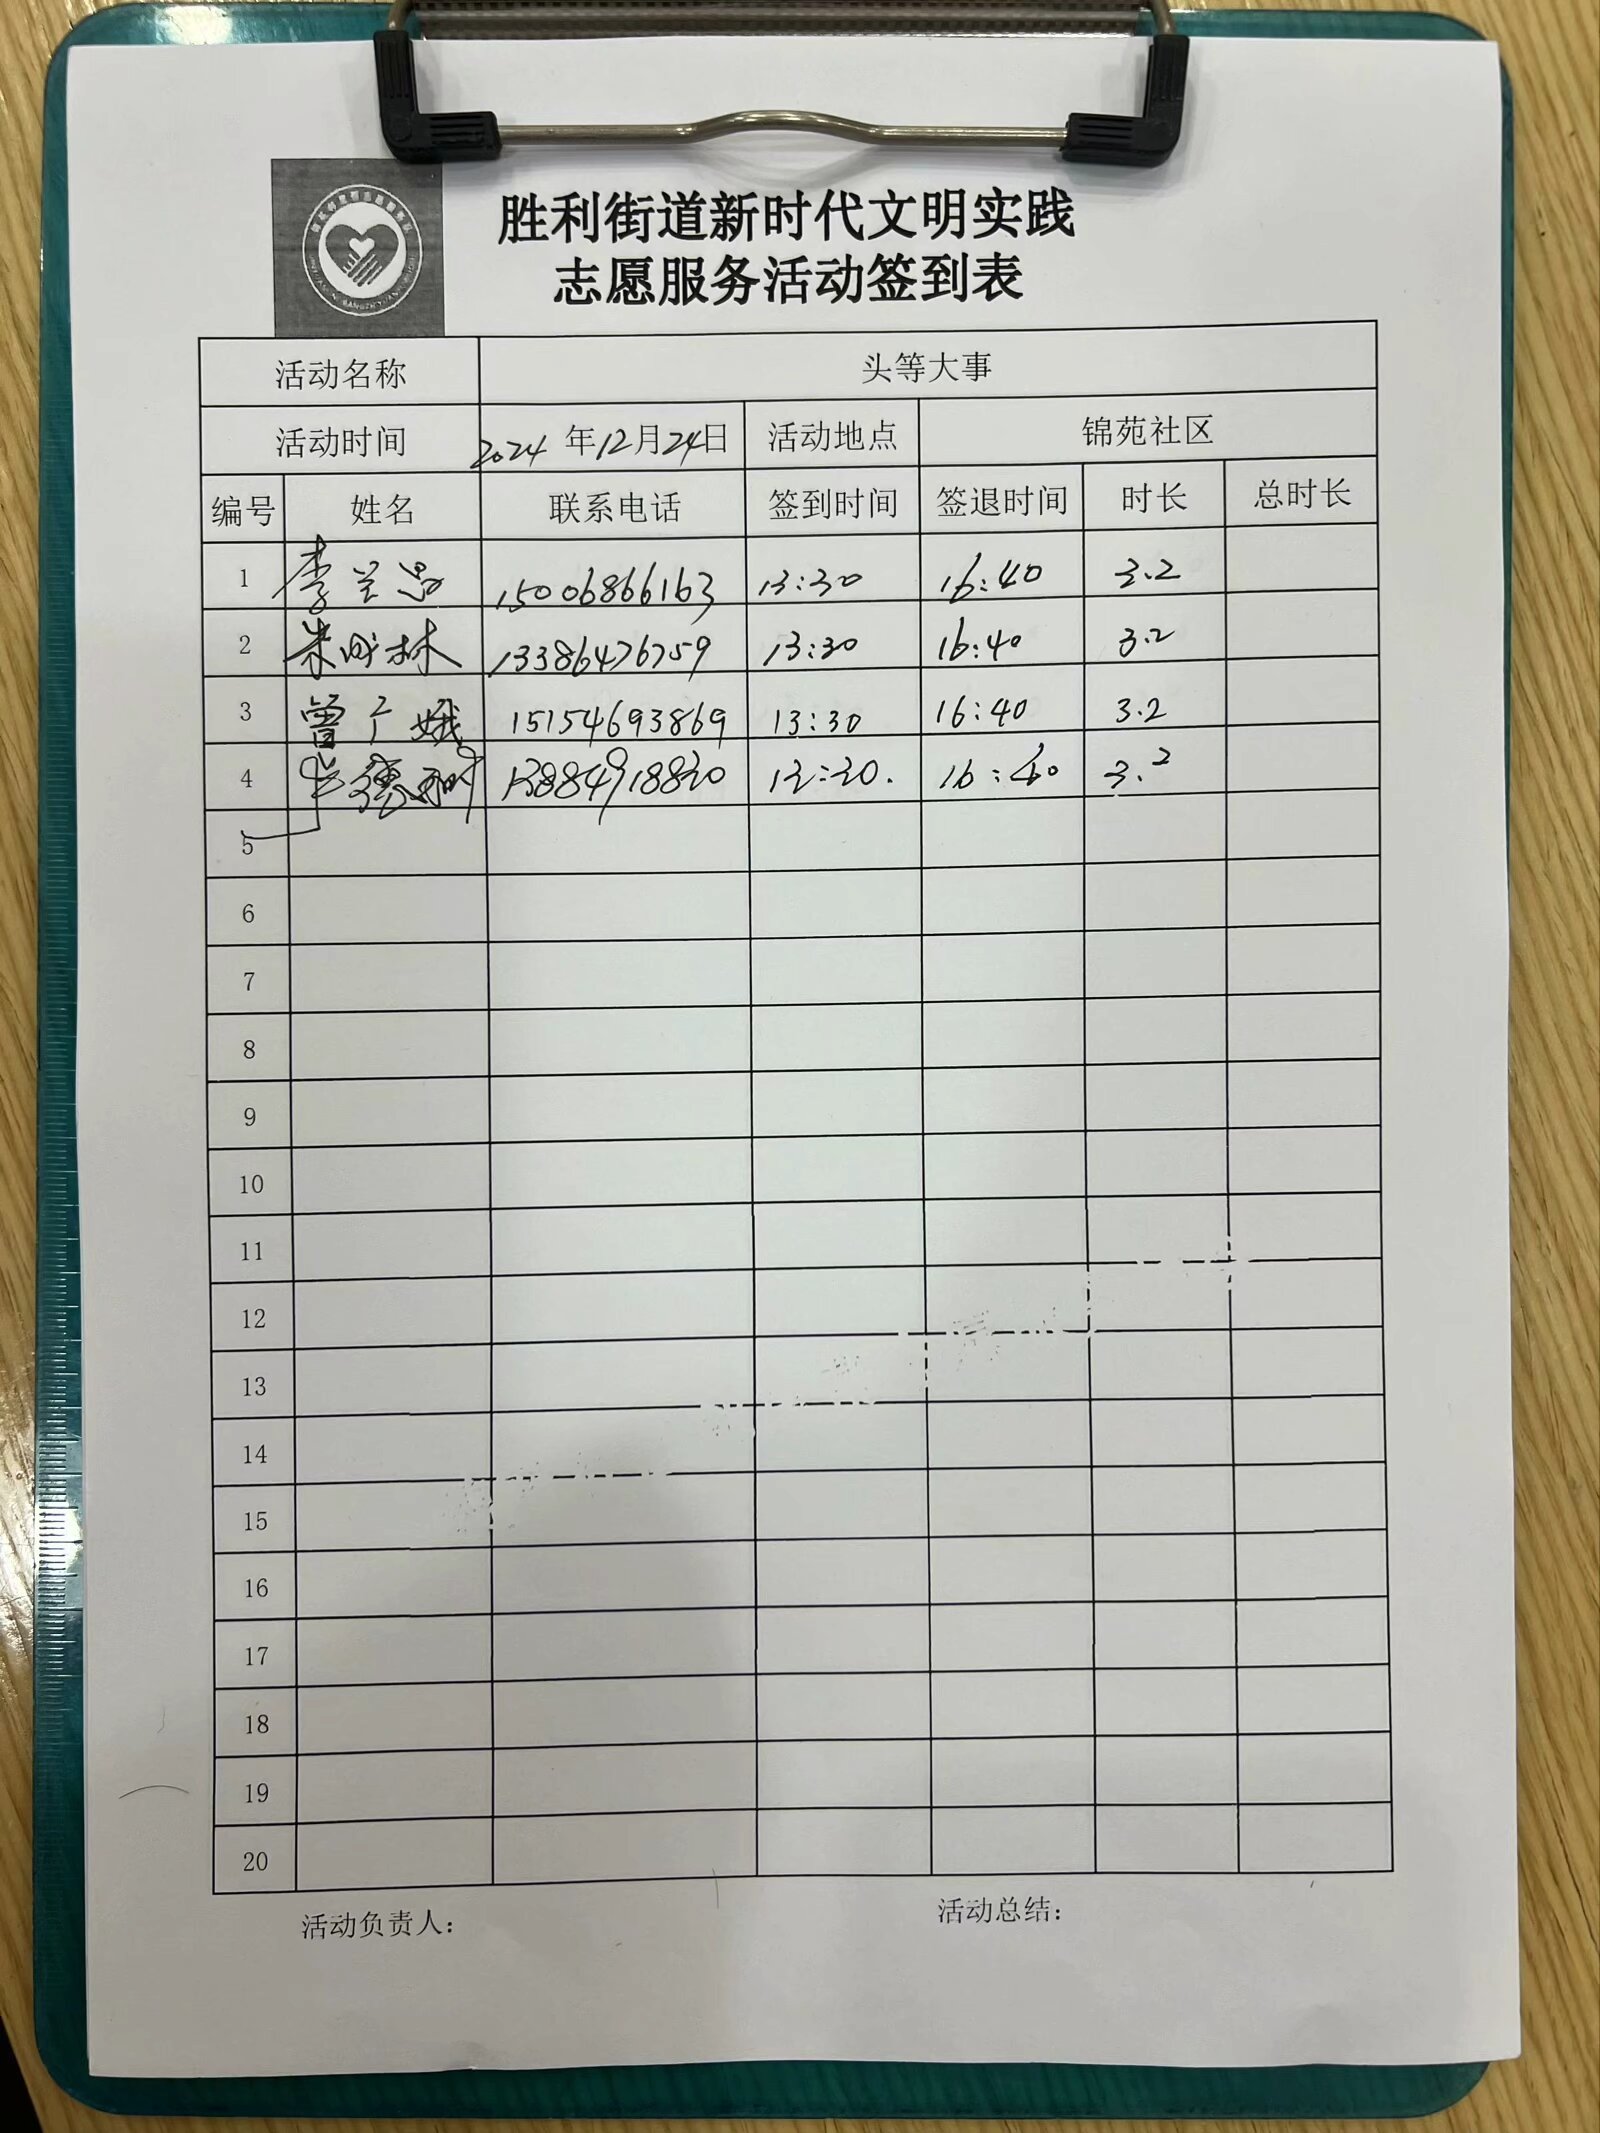 胜利街道新时代文明实践
志愿服务活动签到表
活动名称 头等大事
活动时间 2024年12月24日 活动地点 锦苑社区
编号 姓名 联系电话 签到时间 签退时间 时长 总时长
1 李兰 15006866163 13:30 16:40 3.2
2 朱 林 13386476759 13:30 16:40 3.2
3 曾广娥 15154693869 13:30 16:40 3.2
4 13884918820 16:40 3.2
5
6
7
8
9
10
11
12
13
14
15
16
17
18
19
20
活动负责人： 活动总结：